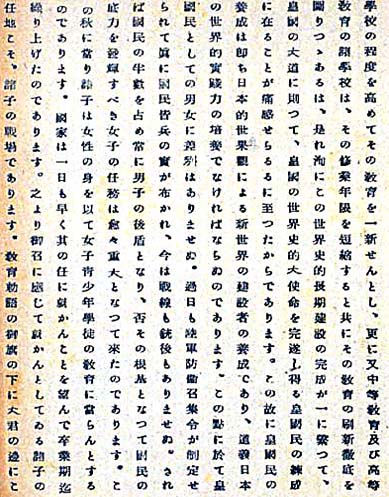 學校の程度を高めてその教育を一新せんとし、更に又中等教育及び高等
教育の諸學校は、その修業年限を短縮すると共にその教育の刷新徹底を
圖りつゝあるは、是れ洵にこの世界史的長期建設の完成が一に繋つて、
皇國の大道に則つて、皇國の世界史的大使命を完遂し得る皇國民の練成
に在ることが痛感せらるるに至つたからであります。この故に皇國民の
養成は即ち日本的世界觀による新世界の建設者の養成であり、道義日本
の世界的實踐力の培養でなければならぬのであります。この點に於て皇
國民としての男女に差別はありませぬ。過日も陸軍防衞召集令が制定せ
られて眞に國民皆兵の實が布かれ、今は戰線も銃後もありませぬ。され
ば國民の半數を占め常に男子の後盾となり、否その根基となつて國民の
底力を發揮すべき女子の任務は愈々重大となつて來たのであります。こ
の秋に當り諸子は女性の身を以て女子靑少年學徒の教育に當らんとする
のであります。國家は一日も早く其の任に就かんことを望んで卒業期迄
繰り上げたのであります。之より御召に應じて就かんとしてゐる諸子の
任地こそ、諸子の戰場であります。教育勅語の御旗の下に大君の邊にこ